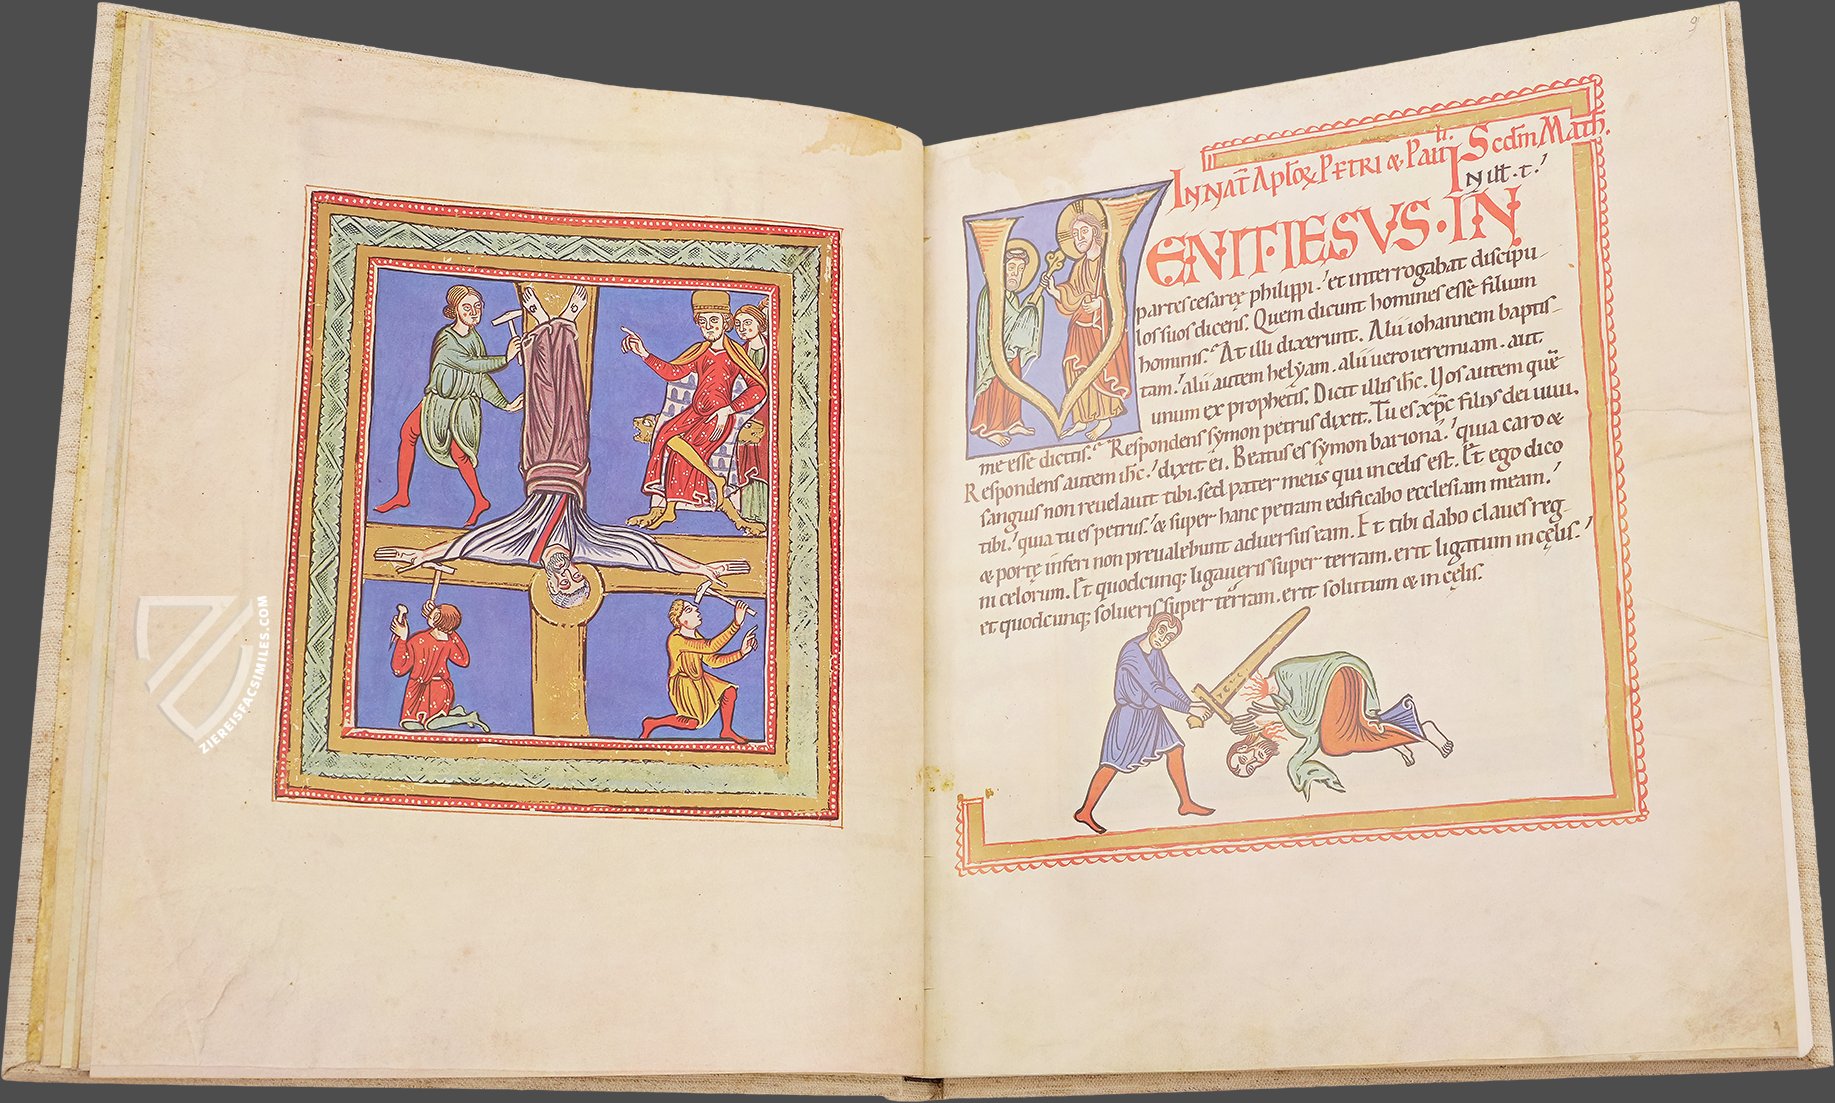 ZIEREISFACSIMILES.COM
9
IN NAT APLOR PETRI & PAULI. SCDM MATH.
IN ILL. T.
VENIT IESVS IN
partes cesareę philippi. et interrogabat discipu-
los suos dicens. Quem dicunt homines esse filium
hominis. At illi dixerunt. Alii iohannem baptis-
tam. alii autem helyam. alii uero ieremiam. aut
unum ex prophetis. Dicit illis ihc. Uos autem quē
me esse dicitis. Respondens symon petrus dixit. Tu es xpc filius dei uiui.
Respondens autem ihc. dixit ei. Beatus es symon bariona. quia caro &
sanguis non reuelauit tibi. sed pater meus qui in celis est. Et ego dico
tibi. quia tu es petrus. & super hanc petram edificabo ecclesiam meam.
& portę inferi non preualebunt aduersus eam. Et tibi dabo claues reg-
ni celorum. Et quodcunq; ligaueris super terram. erit ligatum in cęlis.
et quodcunq; solueris super terram. erit solutum & in cęlis.